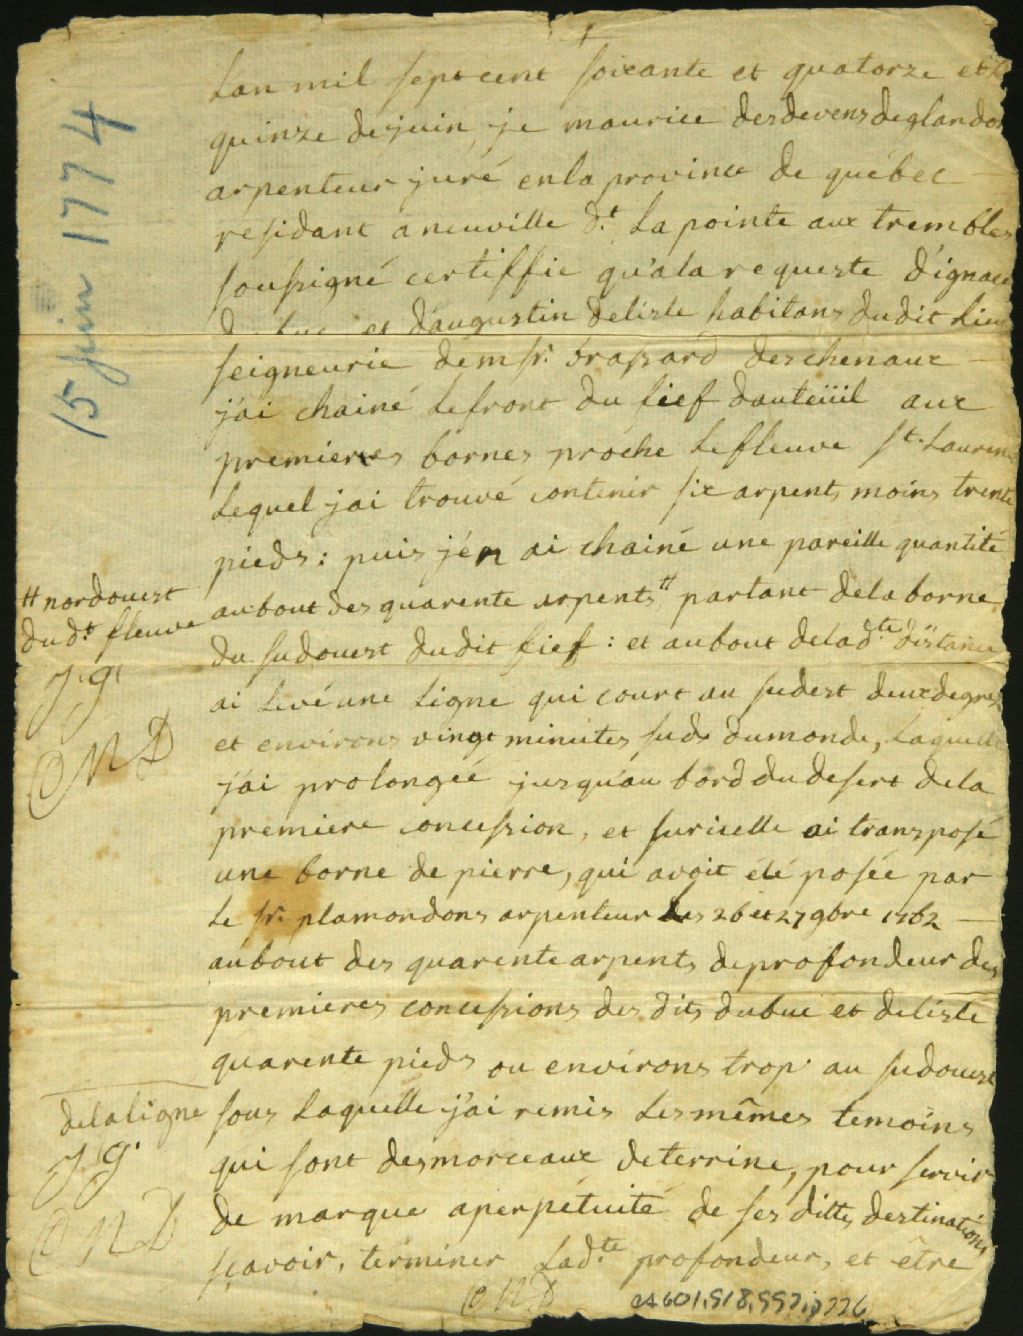 Lan mil sept cent soixante et quatorze et le
quinze de juin, je maurice desdevens deglandos
arpenteur juré enla province de québec
residant a neuville d.t La pointe aux trembles
soussigné certiffie qu'ala requeste d'ignace
dubuc et d'augustin delisle habitans dudit Lieu
seigneurie de m sr. brassard deschenaux
j'ai chainé Le front du fief dauteüil aux
premieres bornes proche Le fleuve st. Laurent
Lequel j'ai trouvé contenir six arpents moins trente
pieds : puis j'en ai chainé une pareille quantité
au bout des quarente arpents # partant dela borne
du sudouest dudit fief : et aubout delad.te distance
ai Levé une Ligne qui court au sudest deux degrez
et environs vingt minutes suds dumonde, Laquelle
j'ai prolongée jusqu'au bord du desert dela
premiere concession, et suricelle ai transposé
une borne de pierre, qui avoit été posée par
Le sr. plamondons arpenteur Les 26 et 27 9bre 1762
aubout des quarente arpents de profondeur des
premieres concessions des dits dubuc et delisle
quarente pieds ou environs trop au sudouest
sous Laquelle j'ai remis Les mêmes temoins
qui sont des morceaux deterrine, pour servir
de marque aperpetuité de ses dittes destinations
sçavoir, terminer Lad.te profondeur, et être
MD
15 juin 1774
# nordouest
dud.t fleuve
J.G.
MD
delaligne
J.G.
MD